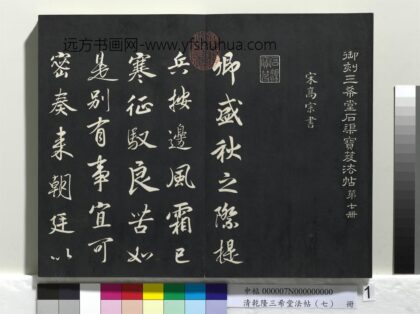 远方书画网-www.yfshuhua.com
御刻三希堂石渠寶笈法帖第七冊
宋高宗書
卿盛秋之際提
兵按邊風霜已
寒征馭良苦如
是別有事宜可
密奏来朝廷以
1
中帖 000007N000000000
清乾隆三希堂法帖（七） 冊